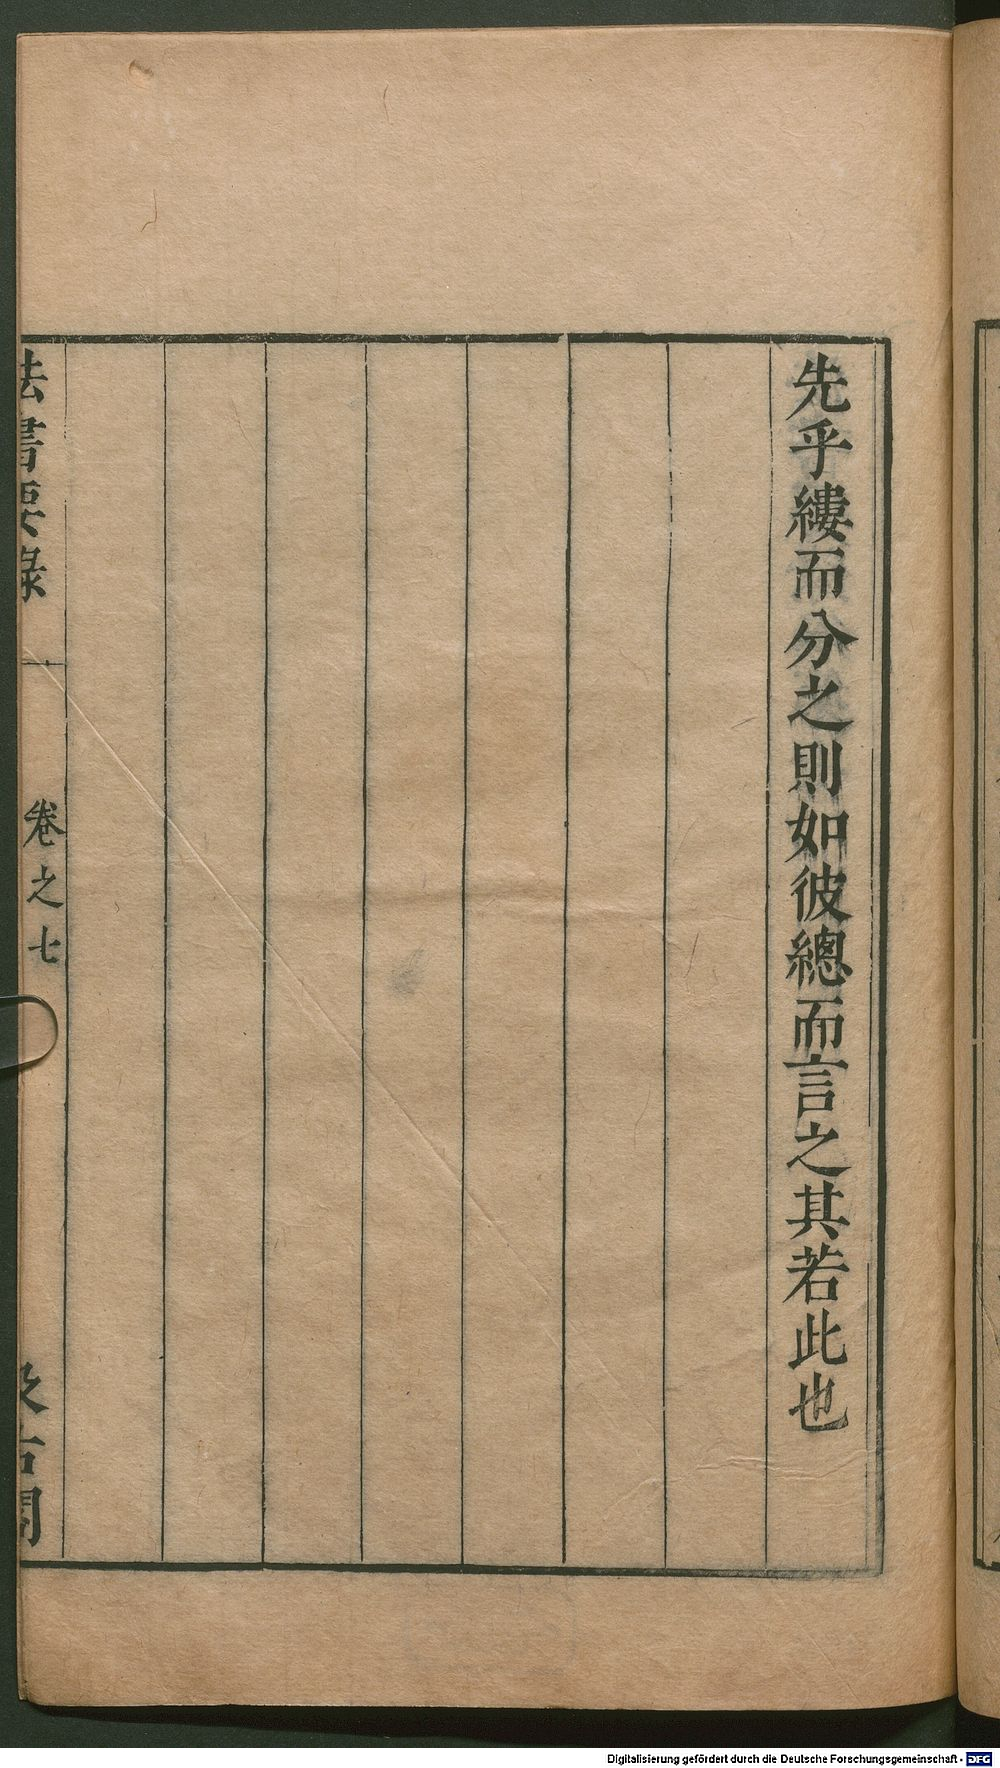 先乎縷而分之則如彼總而言之其若此也
法書要錄
卷之七
汲古閣
Digitalisierung gefördert durch die Deutsche Forschungsgemeinschaft - DFG